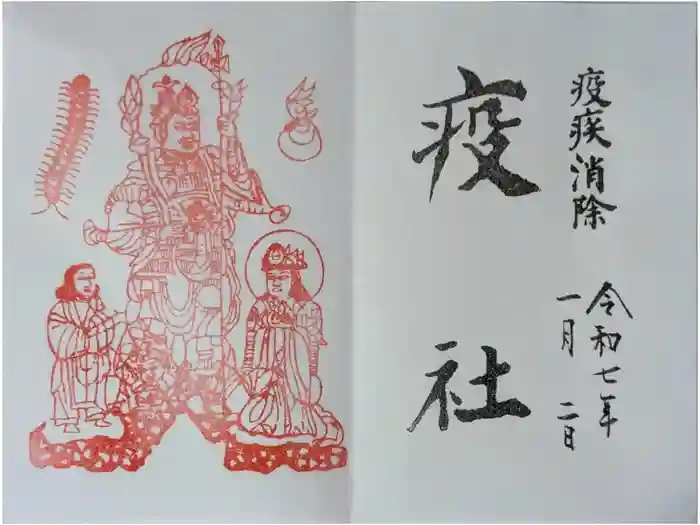 疫疾消除
令和七年
一月二日
疫社